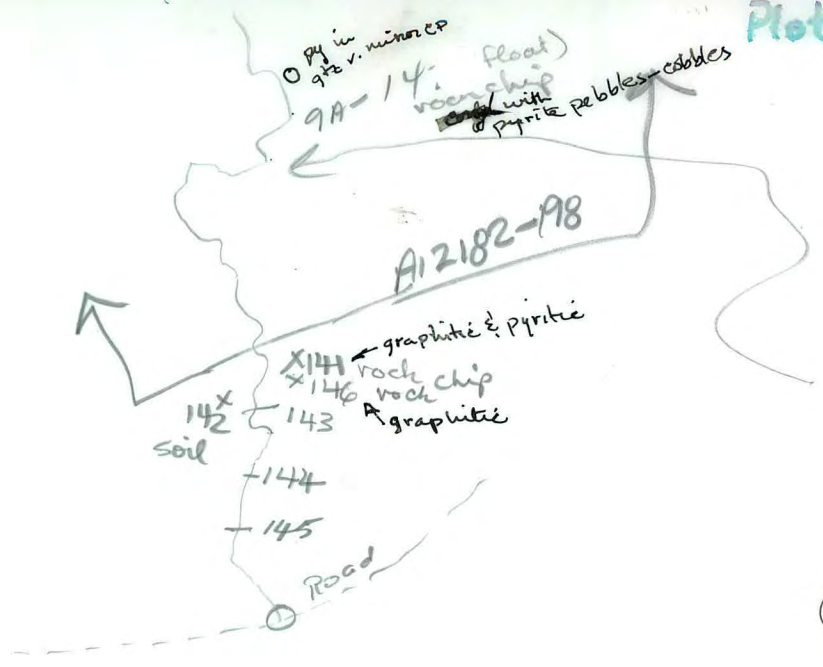 Plot
py in
qtz v. minor cp
9A-14
float)
rock chip
with
pyrite pebbles-cobbles
A12182-198
graphitic & pyritic
X141 rock
X146 rock chip
graphitic
142 X
soil
143
144
145
Road